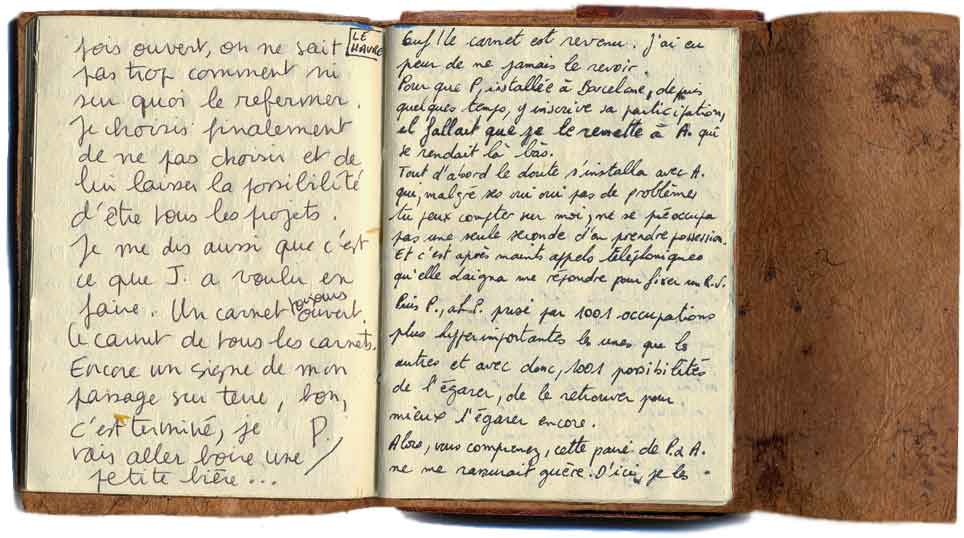 fois ouvert, on ne sait
pas trop comment ni
sur quoi le refermer.
Je choisis finalement
de ne pas choisir et de
lui laisser la possibilité
d'être tous les projets.
Je me dis aussi que c'est
ce que J. a voulu en
faire. Un carnet toujours ouvert.
Le carnet de tous les carnets.
Encore un signe de mon
passage sur terre, bon,
c'est terminé, je P.
vais aller boire une
petite bière...
LE
HAVRE
Ouf! le carnet est revenu. J'ai eu
peur de ne jamais le revoir.
Pour que P, installée à Barcelone, depuis
quelques temps, y inscrive sa participation,
il fallait que je le remette à A. qui
se rendait là bas.
Tout d'abord le doute s'installa avec A.
qui, malgré ses oui oui pas de problèmes
tu peux compter sur moi, ne se préoccupa
pas une seule seconde d'en prendre possession.
Et c'est après maints appels téléphoniques
qu'elle daigna me répondre pour fixer un R.V.
Puis P., ah P. prise par 1001 occupations
plus importantes les unes que les
autres et avec donc, 1001 possibilités
de l'égarer, de le retrouver pour
mieux l'égarer encore.
Alors, vous comprenez, cette paire de P. & A.
ne me rassurait guère. D'ici, je les